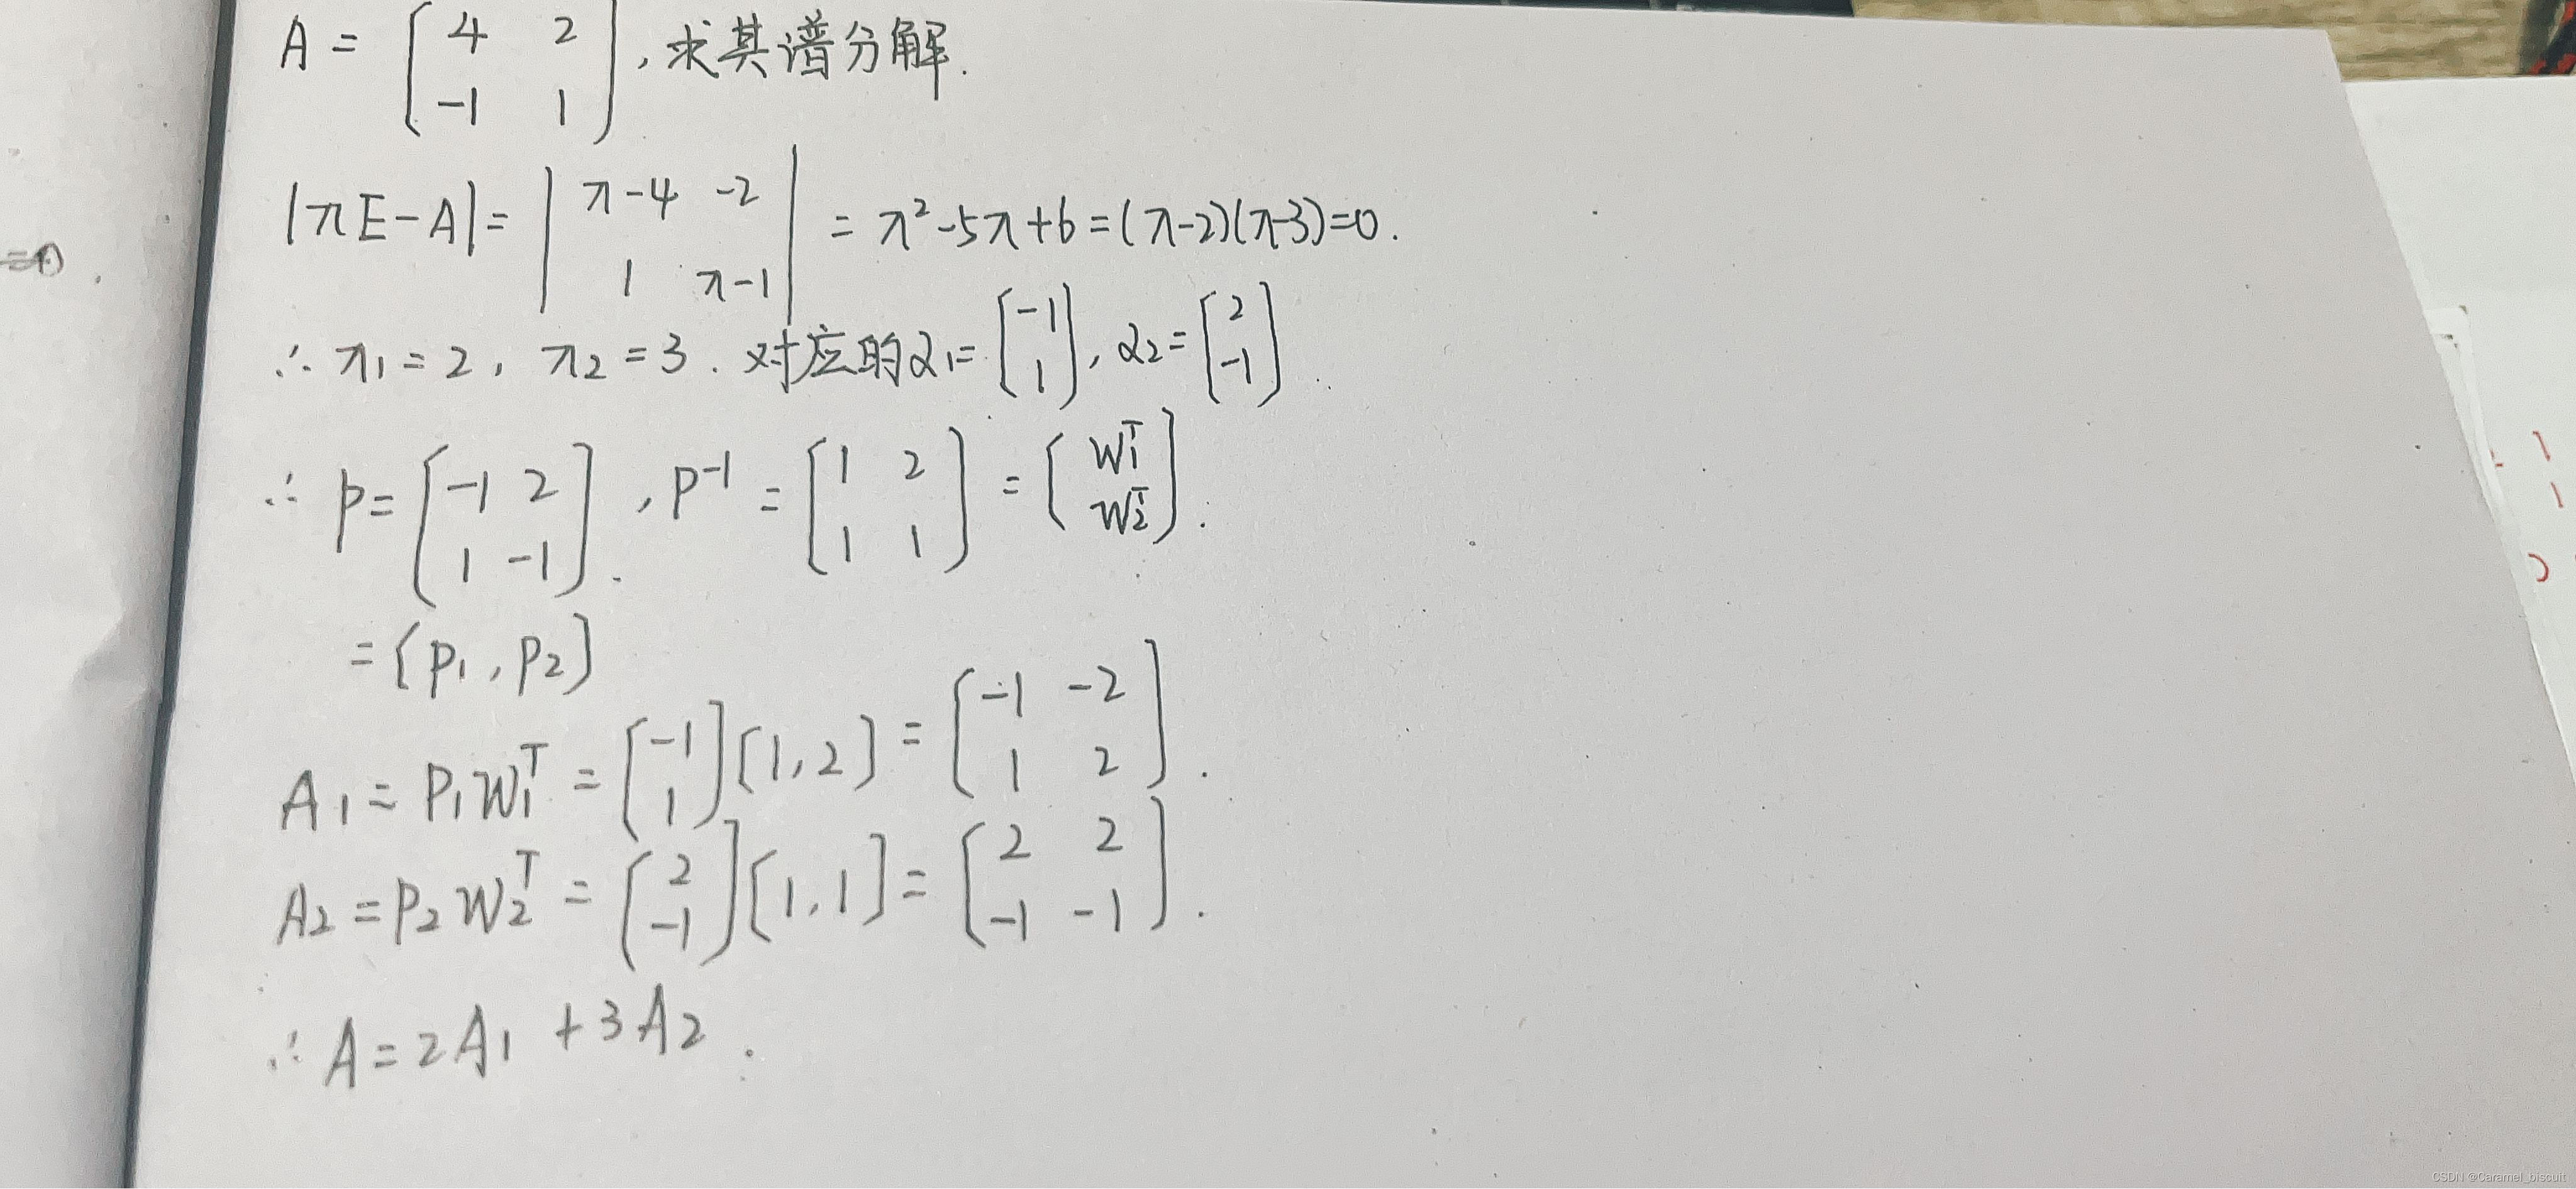 A = [4 2; -1 1], 求其谱分解.
|λE-A| = |λ-4 -2; 1 λ-1| = λ²-5λ+6=(λ-2)(λ-3)=0.
=0.
∴ λ₁=2, λ₂=3. 对应的α₁=[-1; 1], α₂=[2; -1].
∴ P=[-1 2; 1 -1], P⁻¹ = [1 2; 1 1] = [W₁ᵀ; W₂ᵀ].
= [P₁, P₂]
A₁ = P₁W₁ᵀ = [-1; 1][1, 2] = [-1 -2; 1 2].
A₂ = P₂W₂ᵀ = [2; -1][1, 1] = [2 2; -1 -1].
∴ A=2A₁+3A₂.
CSDN @Caramel_biscuit